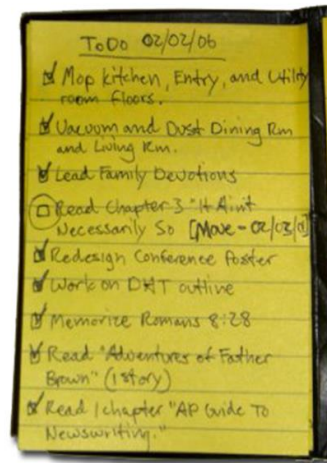 ToDo 02/02/06
Mop kitchen, Entry, and Utility
room floors.
Vacuum and Dust Dining Rm
and Living Rm.
Lead Family Devotions
Read Chapter 3 "It Aint
Necessarily So [Move - 02/03/0
Redesign Conference Poster
Work on DHT outline
Memorize Romans 8:28
Read "Adventures of Father
Brown" (1 story)
Read 1 chapter "AP Guide To
Newswriting."